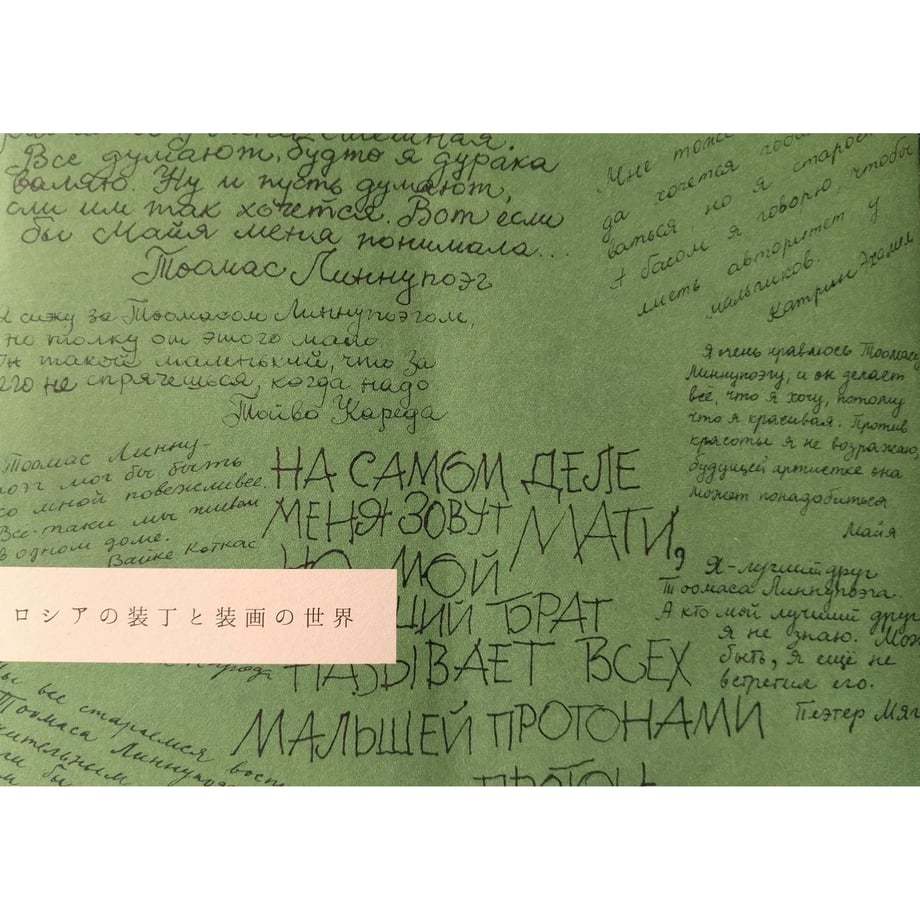 смешная.
Все думают, будто я дурака
валяю. Ну и пусть думают,
сли им так хочется. Вот если
бы Майя меня понимала...
Тоомас Линнупоэг
Мне тоже
да хочется
ваться, но я
я басом я говорю, чтобы
иметь авторитет у
мальчиков.
Катрин
сижу за Тоомасом Линнупоэгом,
но толку от этого мало
н такой маленький, что за
его не спрячешься, когда надо.
Тойво Кареда
Я очень нравлюсь Тоомасу
Линнупоэгу, и он делает
всё, что я хочу, потому
что я красивая. Против
красоты я не возражаю,
будущей артистке она
может понадобиться
Майя
Тоомас Линну-
поэг мог бы быть
со мной повежливее.
Все-таки мы живём
в одном доме.
Вайке Коткас
НА САМОМ ДЕЛЕ
МЕНЯ ЗОВУТ МАТИ,
НО МОЙ
БРАТ
НАЗЫВАЕТ ВСЕХ
МАЛЫШЕЙ ПРОТОНАМИ
Я - лучший друг
Тоомаса Линнупоэга.
А кто мой лучший друг
я не знаю. Мож
быть, я ещё не
встретил его.
Пеэтер Мяг
ロシアの装丁と装画の世界
все стараемся
Тоомаса
бы